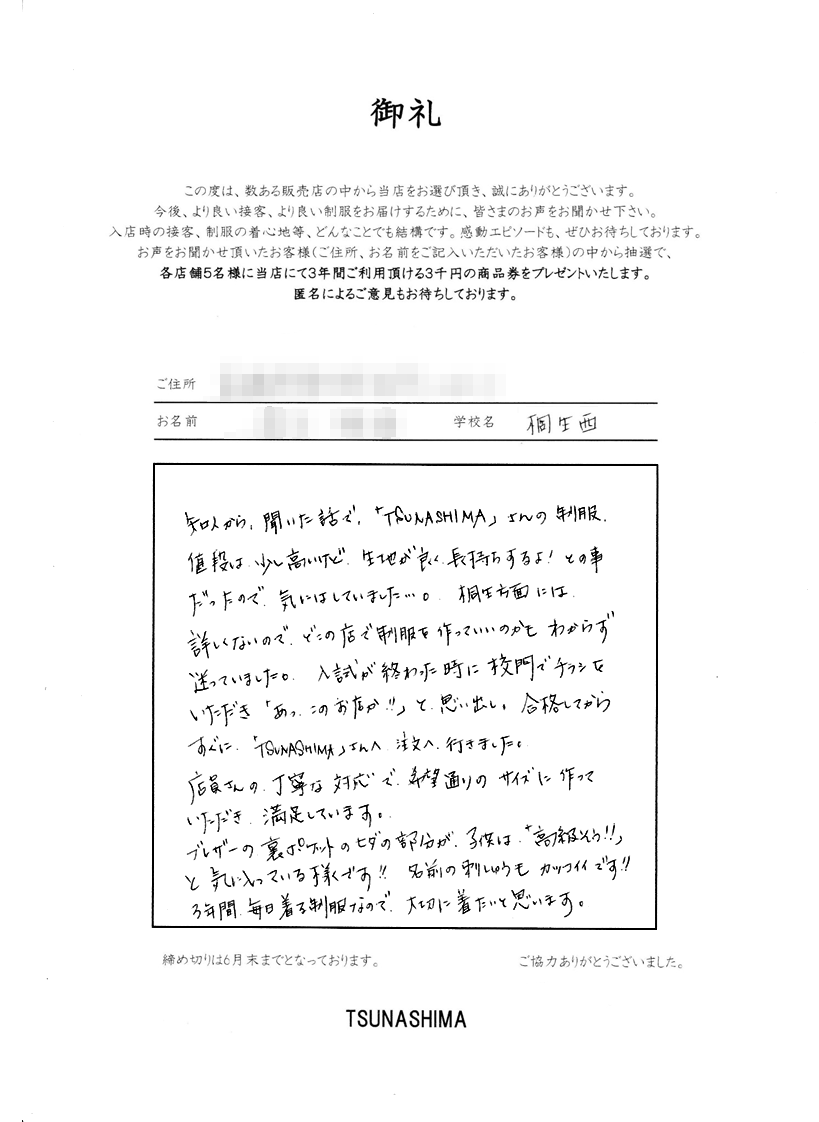 御礼
この度は、数ある販売店の中から当店をお選び頂き、誠にありがとうございます。
今後、より良い接客、より良い制服をお届けするために、皆さまのお声をお聞かせ下さい。
入店時の接客、制服の着心地等、どんなことでも結構です。感動エピソードも、ぜひお待ちしております。
お声をお聞かせ頂いたお客様(ご住所、お名前をご記入いただいたお客様)の中から抽選で、
各店舗5名様に当店にて3年間ご利用頂ける3千円の商品券をプレゼントいたします。
匿名によるご意見もお待ちしております。
ご住所
お名前 学校名 桐生西
知人から、聞いた話で、「TSUNASHIMA」さんの制服、
値段は、少し高いけど、生地が良く、長持ちするよ!との事
だったので、気にはしていました…。桐生方面には、
詳しくないので、どこの店で制服を作っていいのかも わからず
迷っていました。入試が終わった時に校門でチラシを
いただき「あっ、このお店か!!」と、思い出し。合格してから
すぐに、「TSUNASHIMA」さんへ 注文へ、行きました。
店員さんの、丁寧な対応で、希望通りの サイズに作って
いただき、満足しています。
ブレザーの裏ポケットのヒダの部分が、子供は、「高級そう!!」
と 気に入っている様です!! 名前の刺しゅうも カッコイイです!!
3年間、毎日着る制服なので、大切に着たいと思います。
締め切りは6月末までとなっております。 ご協力ありがとうございました。
TSUNASHIMA